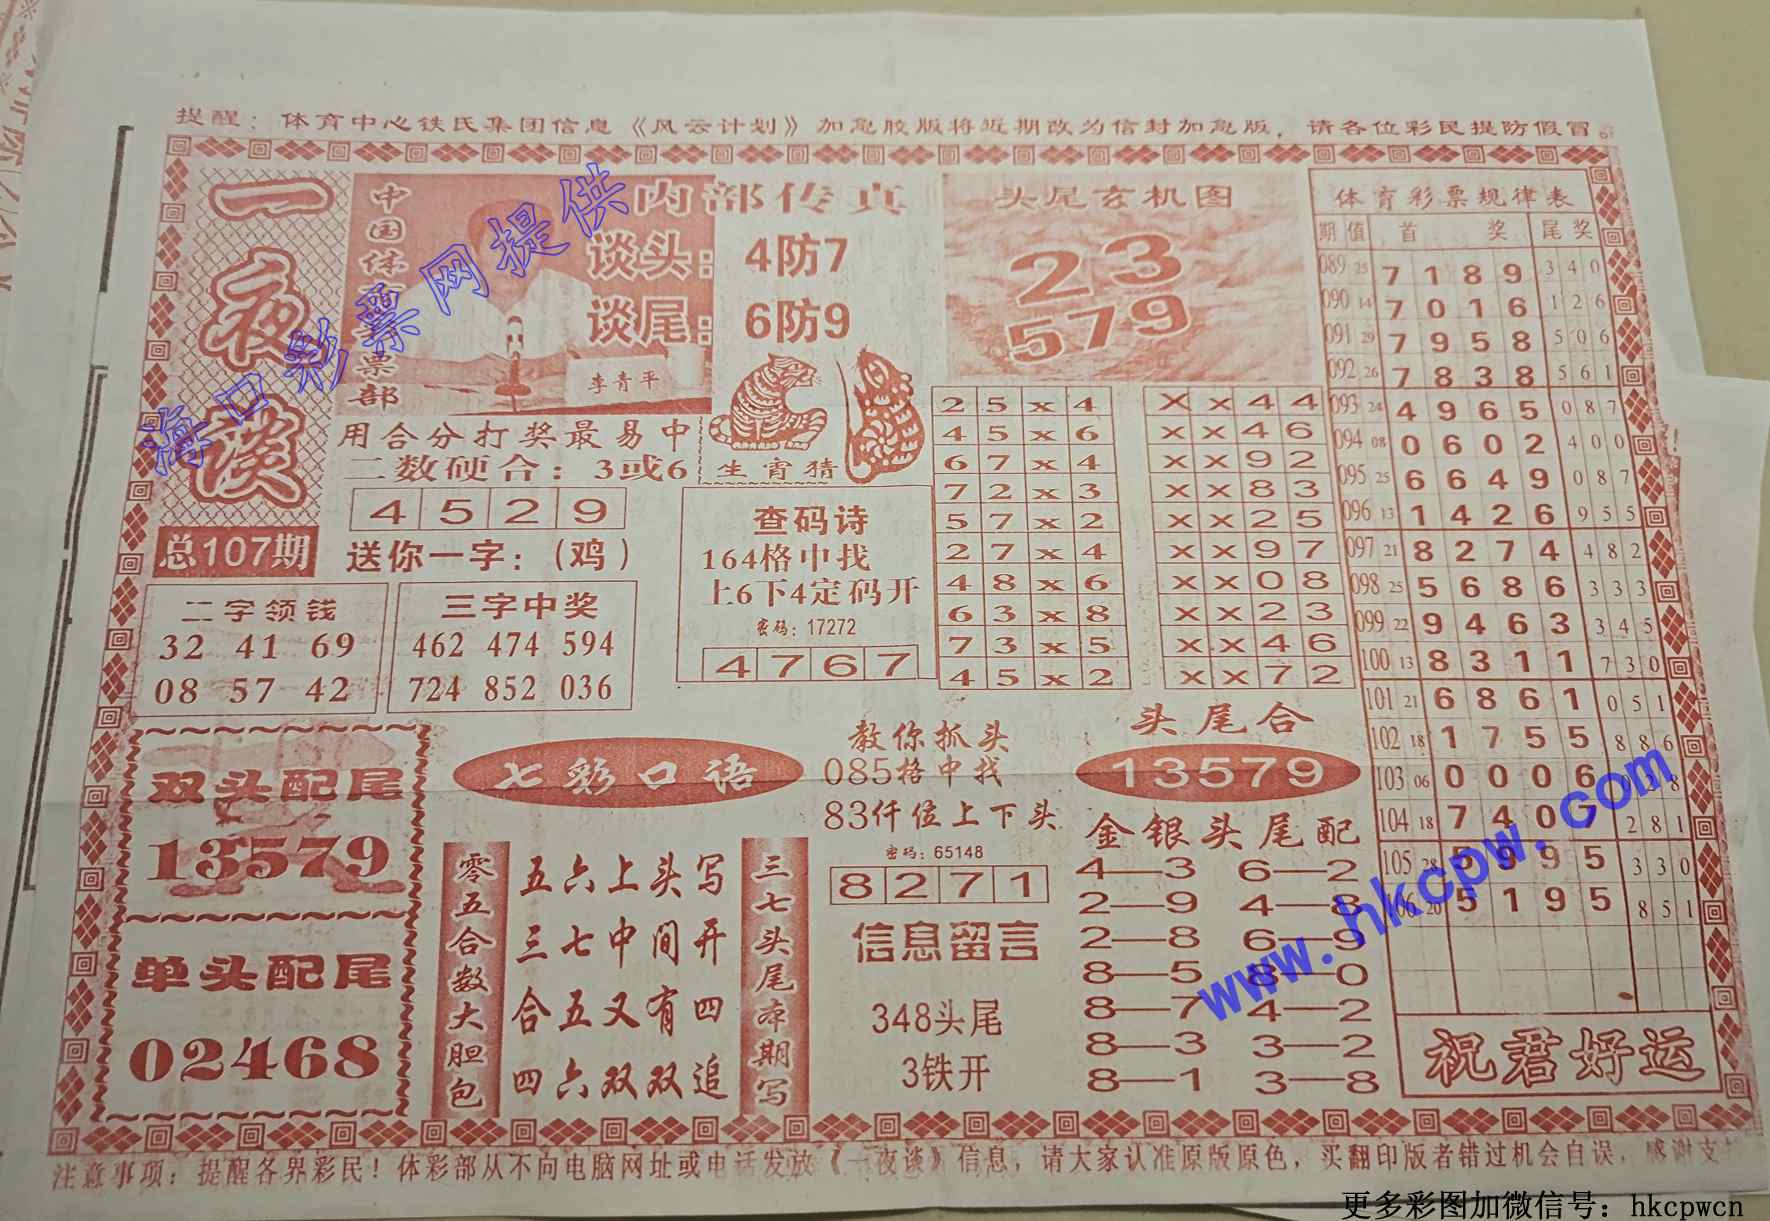 提醒：体育中心铁氏集团信息《风云计划》加急胶版将近期改为信封加急版，请各位彩民提防假冒。
一夜谈
总107期
中国体育彩票部
内部传真
谈头：4防7
谈尾：6防9
李青平
用合分打奖最易中
二数硬合：3或6
4 5 2 9
送你一字：（鸡）
生宵猜
二字领钱
32 41 69
08 57 42
三字中奖
462 474 594
724 852 036
查码诗
164格中找
上6下4定码开
密码：17272
4 7 6 7
头尾玄机图
23
579
2 5 x 4
4 5 x 6
6 7 x 4
7 2 x 3
5 7 x 2
2 7 x 4
4 8 x 6
6 3 x 8
7 3 x 5
4 5 x 2
X x 4 4
x x 4 6
x x 9 2
x x 8 3
x x 2 5
x x 9 7
x x 0 8
x x 2 3
x x 4 6
x x 7 2
体育彩票规律表
期 值 首 奖 尾 奖
089 25 7 1 8 9 3 4 0
090 14 7 0 1 6 1 2 6
091 29 7 9 5 8 5 0 6
092 26 7 8 3 8 5 6 1
093 24 4 9 6 5 0 8 7
094 08 0 6 0 2 4 0 0
095 25 6 6 4 9 0 8 7
096 13 1 4 2 6 9 5 5
097 21 8 2 7 4 4 8 2
098 25 5 6 8 6 3 3 3
099 22 9 4 6 3 3 4 5
100 13 8 3 1 1 7 3 0
101 21 6 8 6 1 0 5 1
102 18 1 7 5 5 8 8 6
103 06 0 0 0 6 3 8
104 18 7 4 0 7 2 8 1
105 28 5 9 9 5 3 3 0
06 20 5 1 9 5 8 5 1
祝君好运
双头配尾
13579
单头配尾
02468
七彩口语
零五合数大胆包
五六上头写
三七中间开
合五又有四
四六双双追
三七头尾本期写
教你抓头
085格中找
83仟位上下头
密码：65148
8 2 7 1
信息留言
348头尾
3铁开
头尾合
13579
金银头尾配
4—3 6—2
2—9 4—8
2—8 6—9
8—5 8—0
8—7 4—2
8—3 3—2
8—1 3—8
注意事项：提醒各界彩民！体彩部从不向电脑网址或电话发放《一夜谈》信息，请大家认准原版原色，买翻印版者错过机会自误，感谢支
海口彩票网提供
www.hkcpw.com
更多彩图加微信号：hkcpwcn